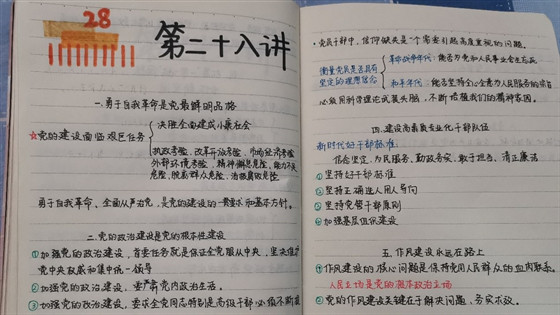 28
第二十八讲
一.勇于自我革命是党最鲜明品格
☆党的建设面临艰巨任务
决胜全面建成小康社会
执政考验,改革开放考验,市场经济考验
外部环境考验,精神懈怠危险,能力不足
危险,脱离群众危险,消极腐败危险
勇于自我革命、全面从严治党,是党的建设的一贯要求和基本方针。
二.党的政治建设是党的根本性建设
①加强党的政治建设,首要任务就是保证全党服从中央,坚决维护
党中央权威和集中统一领导
②加强党的政治建设,要严肃党内政治生活。
③加强党的政治建设,要求全党同志特别是高级干部必须不断提
党员干部中,信仰缺失是一个需要引起高度重视的问题.
衡量党员是否具有
坚定的理想信念
革命战争年代:能否为党和人民事业舍生忘死
和平年代:能否坚持全心全意为人民服务的宗旨
必须用科学理论武装头脑,不断培植我们的精神家园。
四.建设高素质专业化干部队伍
新时代好干部标准
信念坚定、为民服务、勤政务实、敢于担当、清正廉洁
①坚持好干部标准
②坚持正确选人用人导向
③坚持党管干部原则
④加强基层组织建设
五.作风建设永远在路上
①作风建设的核心问题是保持党同人民群众的血肉联系。
人民立场是党的根本政治立场
②党的作风建设关键在于解决问题,务求实效。